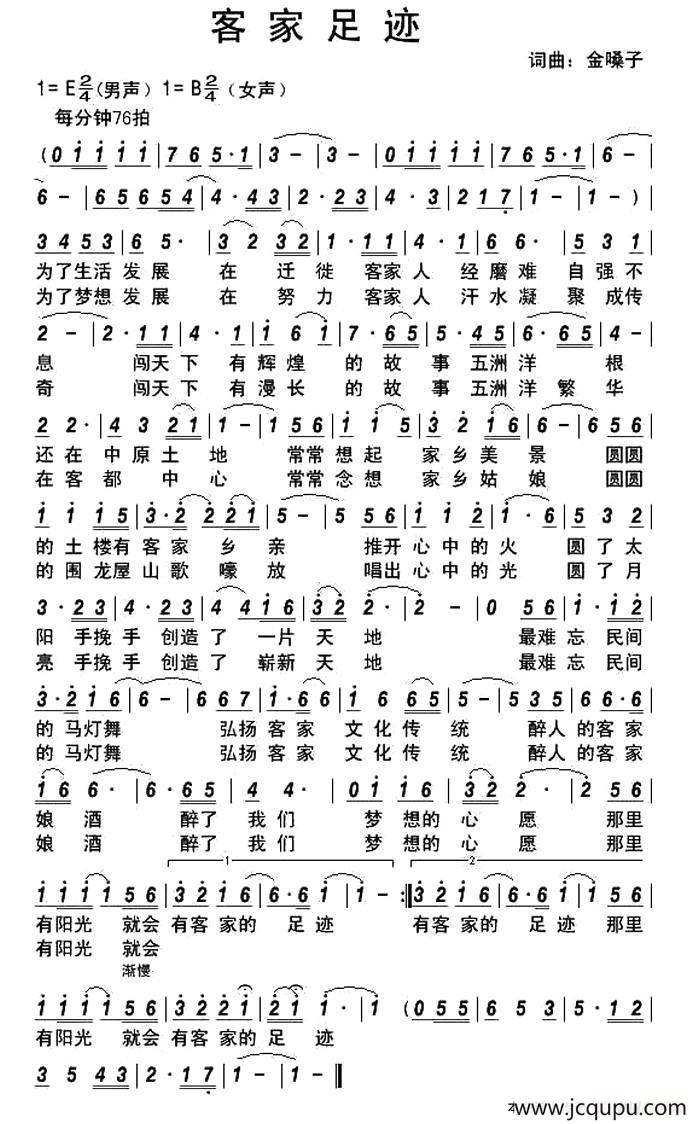 客家足迹
词曲：金嗓子
1=E2/4(男声) 1=B2/4(女声)
每分钟76拍
(0 1 1 1 1|7 6 5·1|3 -|3 -|0 1 1 1 1|7 6 5·1|6 -|
6 -|6 5 6 5 5 4|4·4 3|2·2 3|4·3|2 1 7|1 -|1 -)|
3 4 5 3|6 5·|3 2 3 2|1·1 1|4·1|6 6·|5 3 1|
为了生活发展 在 迁徙 客家人 经磨难 自强不
为了梦想发展 在 努力 客家人 汗水凝聚成传
2 -|2·1 1|4·1|1 6 1|7·6 5|5·4 5|6·6 5|4 -|
息 闯天下 有辉煌 的故事五洲洋 根
奇 闯天下 有漫长 的故事五洲洋繁华
2 2·|4 3 2 1|1 -|1 5 6|1 1 5|3·2 1 6|6 -|6 5 6|
还在中原土地 常常想起 家乡美景 圆圆
在客都中心 常常念想 家乡姑娘 圆圆
1 1 1 5|3·2 2 2 1|5 -|5 3 5|1·4|2 2 1|1·6|5 3 2|
的土楼有客家乡亲 推开心中的火 圆了太
的围龙屋山歌嚎放 唱出心中的光 圆了月
3·2 3|4·2 3|4 4 1 6|3 2 2·|2 -|0 5 6|1·1 2|
阳 手挽手创造了一片天地 最难忘民间
亮 手挽手创造了崭新天地 最难忘民间
3·2 1 6|6 -|6 6 7|1·6 6|1 6 6 5|5 -|5 3 5|6 6·6|
的马灯舞 弘扬客家 文化传统 醉人的客家
的马灯舞 弘扬客家 文化传统 醉人的客家
1 6 6·|6·6 5|2 4 4·|0 1 1 6|3 2 2·|2 5 6|
娘酒 醉了我们 梦想的心愿 那里
娘酒 醉了我们 梦想的心愿 那里
1 2
1 1 1 1 5 6|3 2 1 6|6·6 1|1 -:|3 2 1 6|6·6 1|1 5 6|
有阳光 就会有客家的足迹 有客家的足迹那里
有阳光 就会
渐慢
1 1 1 1 5 6|3 2 3 2|2 1 1·|1 (0 5 5|6 5 3|0 5 5|
有阳光 就会有客家的足迹
3 5 4 3|2·1 7|1 -|1 -‖
www.jcqupu.com